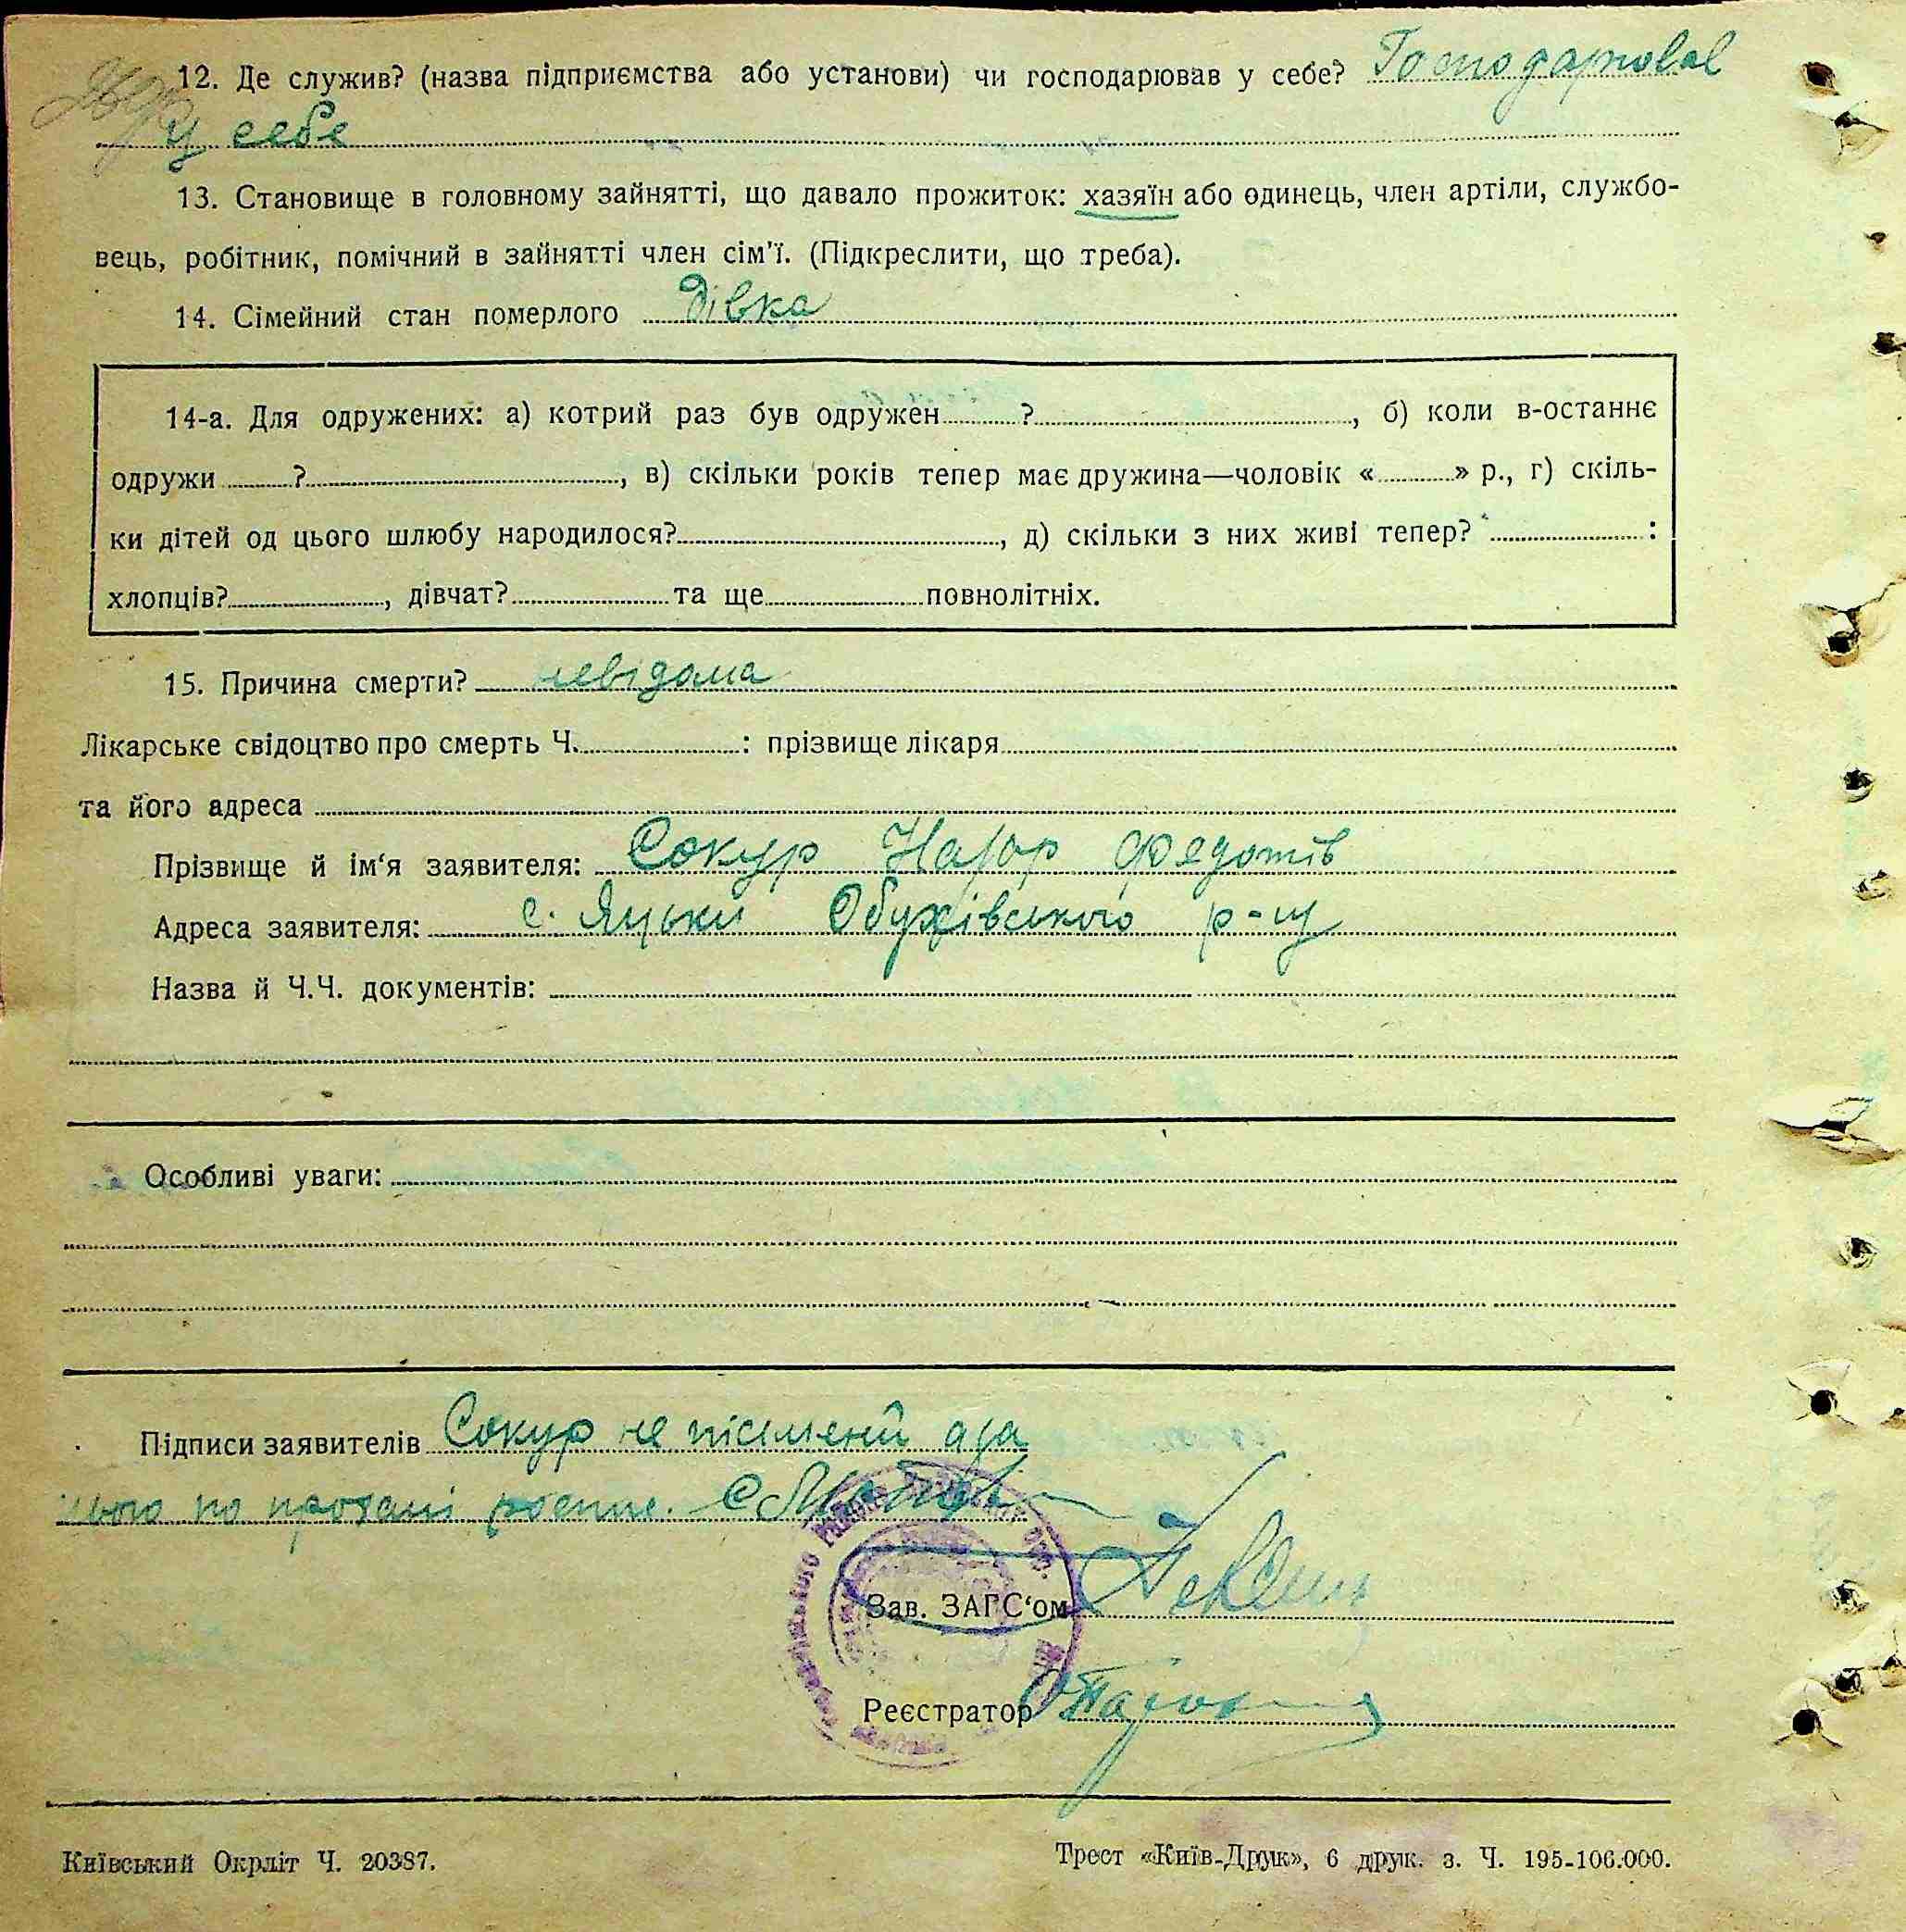 12. Де служив? (назва підприємства або установи) чи господарював у себе? Господарювал
у себе
13. Становище в головному зайнятті, що давало прожиток: хазяїн або одинець, член артіли, службо-
вець, робітник, помічний в зайнятті член сім'ї. (Підкреслити, що треба).
14. Сімейний стан померлого дівка
14-а. Для одружених: а) котрий раз був одружен ?, б) коли в-останнє
одружи ?, в) скільки років тепер має дружина—чоловік « » р., г) скіль-
ки дітей од цього шлюбу народилося?, д) скільки з них живі тепер? :
хлопців?, дівчат? та ще повнолітніх.
15. Причина смерти? невідома
Лікарське свідоцтво про смерть Ч. : прізвище лікаря
та його адреса
Прізвище й ім'я заявителя: Сокур Назар Федотів
Адреса заявителя: с. Яцьки Обухівського р-ну
Назва й Ч.Ч. документів:
Особливі уваги:
Підписи заявителів Сокур не пісмений а за
нього по прозьбі
Зав. ЗАГС'ом
Реєстратор
Київський Окрліт Ч. 20387.
Трест «Київ-Друк», 6 друк. з. Ч. 195-106.000.